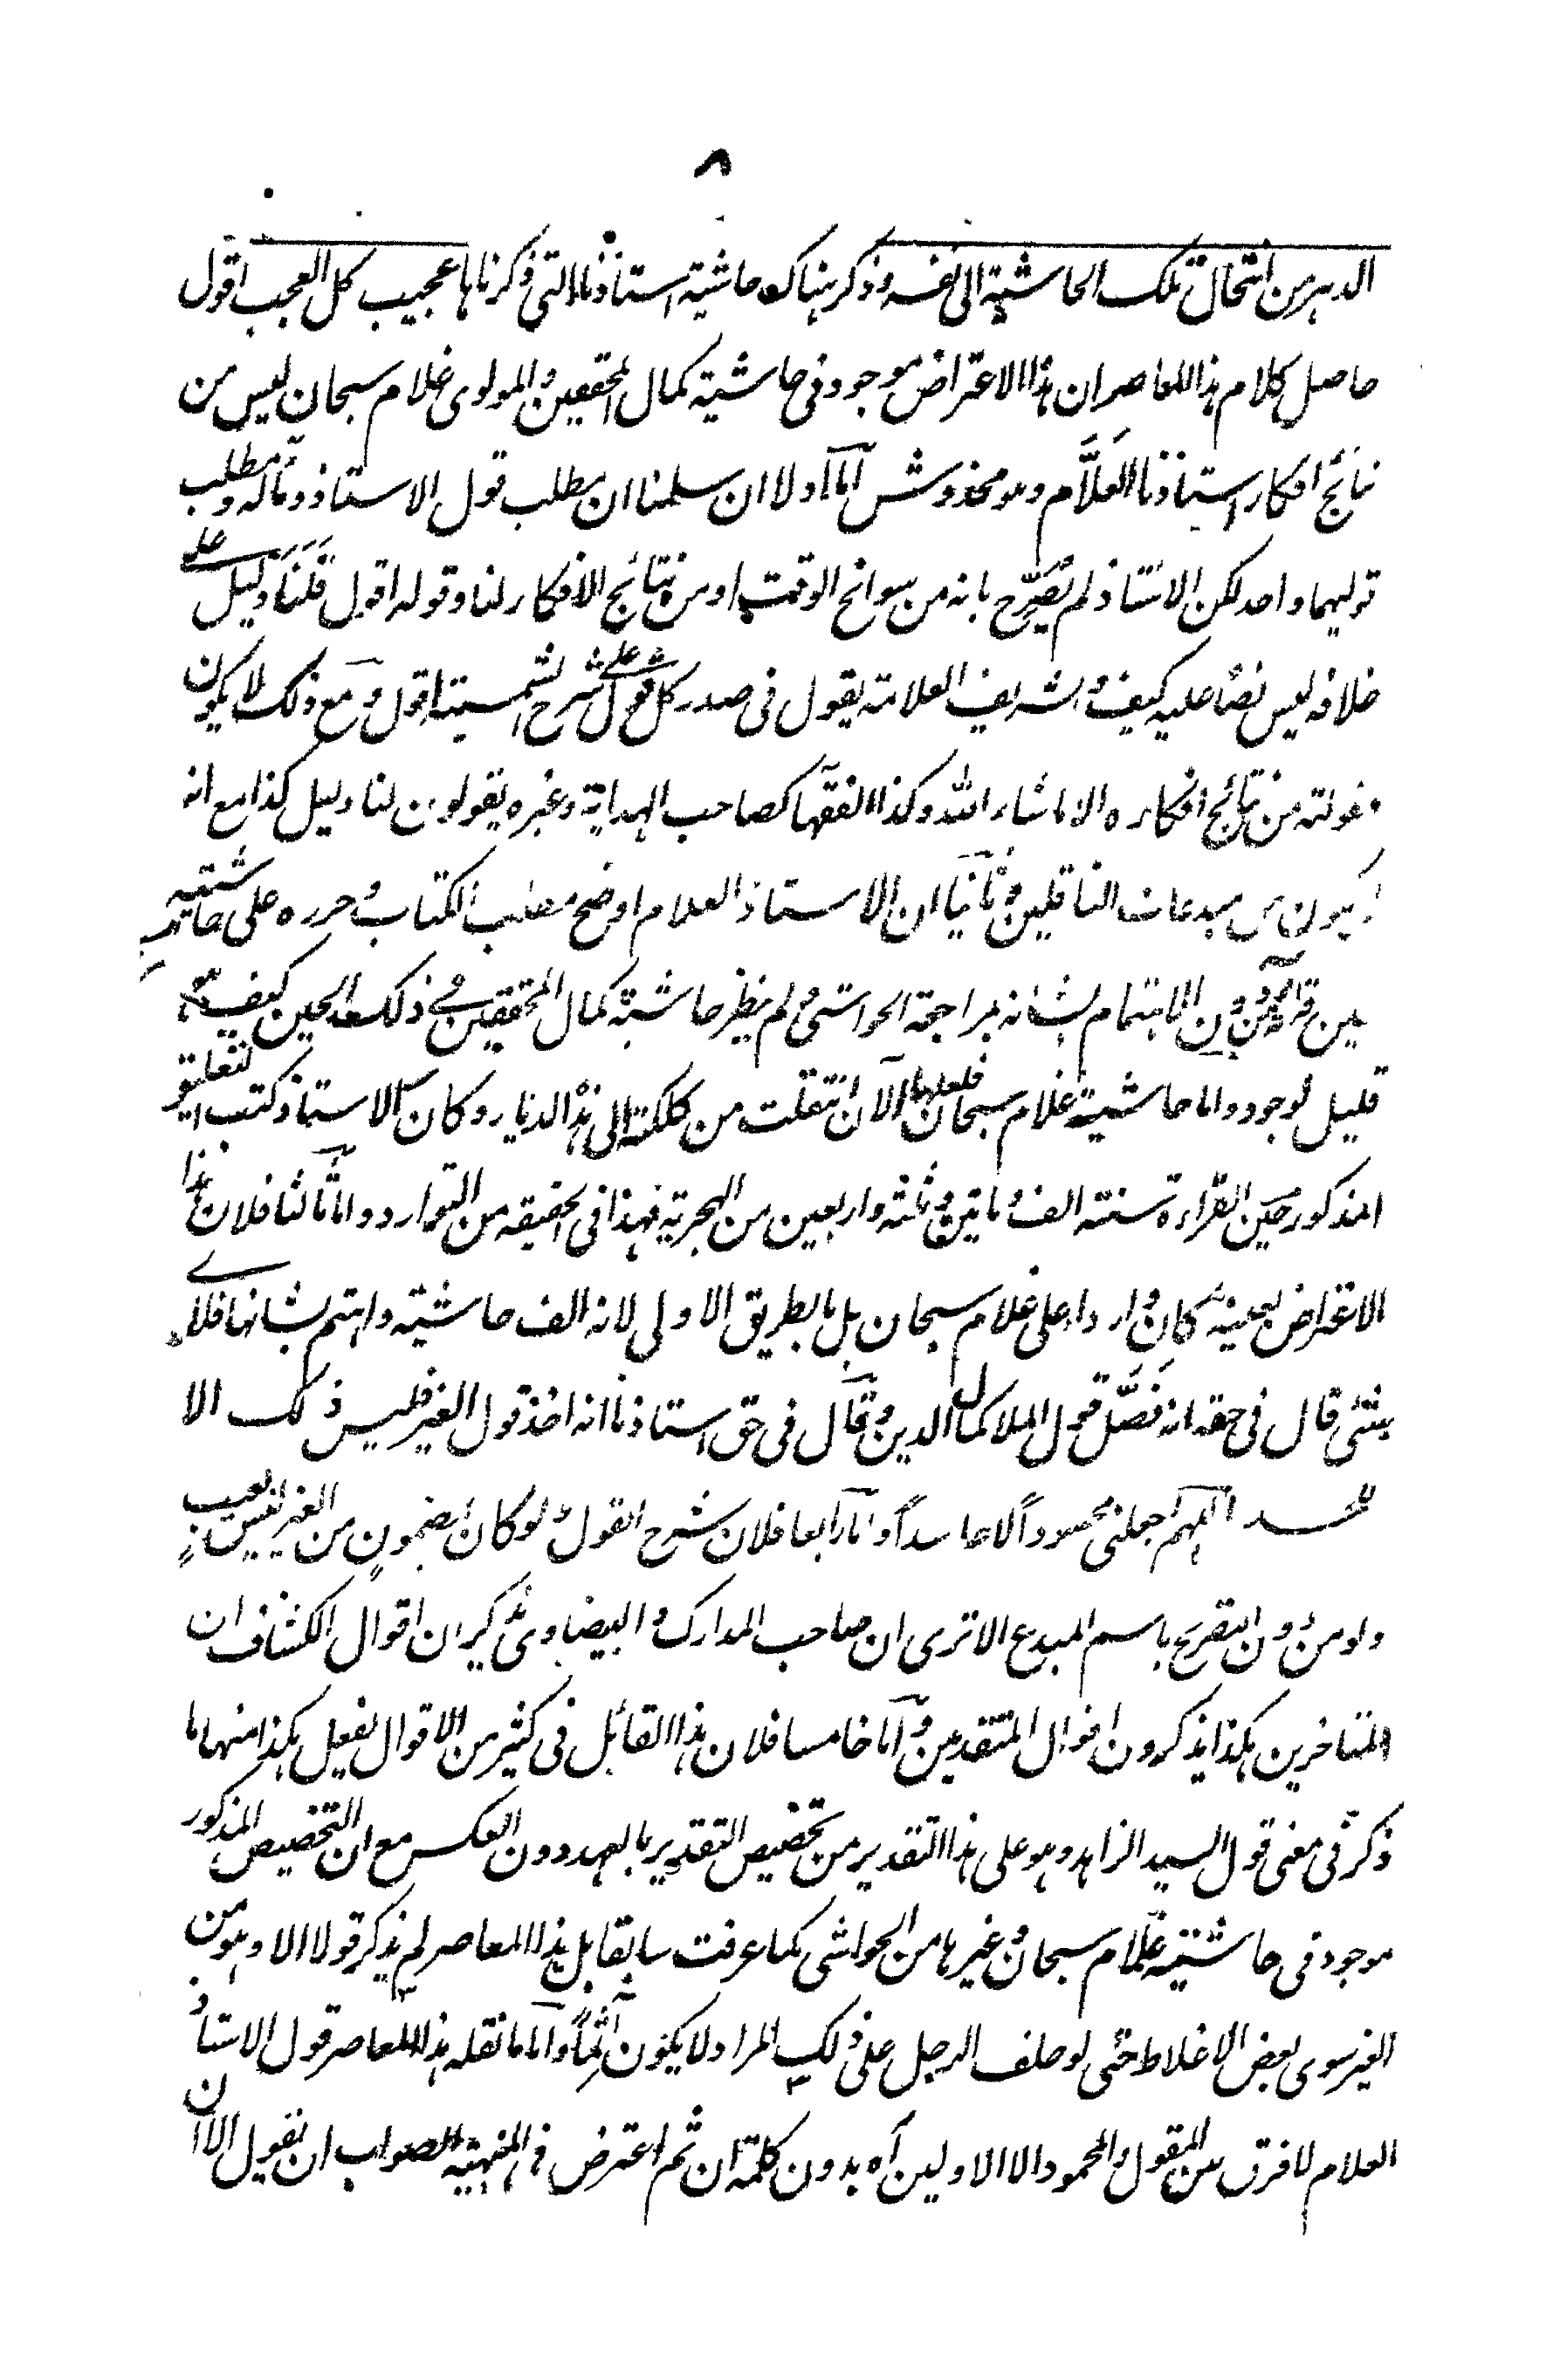 ٨
الدہر من انتحال تلک الحاشیۃ الی نفسہ و ذکر ہناک حاشیۃ استاذنا التی ذکرناہا عجیب کل العجب اقول
حاصل کلام ہذا المعاصر ان ہذا الاعتراض موجود فی حاشیۃ کمال المحققین و المولوی غلام سبحان لیس من
نتائج افکار استاذنا العَلَّام وہو مخدوش اَمَّا اولا ان سلمنا ان مطلب قول الاستاذ ومآلہ ومطلب
قولیہما واحد لکن الاستاذ لم یُصَرِّح بانہ من سوانح الوقت او من نتائج الافکار لنا وقولہ اقول فَلَنَا دلیل علی
خلافہ لیس نصًا علیہ کیف والشریف العلامۃ یقول فی صدر کل قول علی شرح الشمسیۃ اقول ومع ذلک لا یکون
مقولتہ من نتائج افکارہ الا ما شاء اللہ وکذا الفقہا کصاحب الہدایۃ وغیرہ یقولون لنا دلیل کذا مع انہ
یکون من مبدعات الناقلین وثانیا ان الاستاذ العلام اوضح مطلب الکتاب وحررہ علی حاشیتہ
حین قرأتی من دون الاہتمام لشانہ بمراجعۃ الحواشی ولم ینظر حاشیۃ کمال المحققین فی ذلک الحین کیف
قلیل لوجود واما حاشیۃ غلام سبحان فلعلہا الآن انتقلت من کلکتہ الی ہذہ الدیار وکان الاستاذ کتب التعلیق
المذکور حین القراءۃ سنۃ الف ومایتین وثلثۃ واربعین من الہجریۃ فہذا فی الحقیقۃ من التوارد واما ثالثا فلان ہذا
الاعتراض بعینہ کان واردا علی غلام سبحان بل بالطریق الاولی لانہ الف حاشیۃ واہتم بشانہا فلای
شئ قال فی حقہ انہ فَصَّل قول الملا کمال الدین وقال فی حق استاذنا انہ اخذ قول الغیر فلیس ذلک الا
للحسد اللہم اجعلنی محسوداً لا حاسداً واما رابعا فلان شرح القول ولو کان بمضمونٍ من الغیر لیس بعیب
ولو من دون التصریح باسم المبدع الا تری ان صاحب المدارک والبیضاوی یذکران اقوال الکشاف ان
المتاخرین ہکذا یذکرون اقوال المتقدمین واَمَّا خامسا فلان ہذا القائل فی کثیر من الاقوال یفعل ہکذا منہا ما
ذکر فی معنی قول السید الزاہد وہو علی ہذا التقدیر من تخصیص التقدیر بالعہد دون العکس مع ان التخصیص المذکور
موجود فی حاشیۃ غلام سبحان وغیرہا من الحواشی کما عرفت سابقا بل ہذا المعاصر لم یذکر قولا الا وہو من
الغیر سوی بعض الاغلاط حتی لو حلف الرجل علی ذلک المراد لا یکون آثمًا واما ما نقلہ ہذا المعاصر قول الاستاذ
العلام لا فرق بین المقول والمحمود الا الاولین آہ بدون کلمۃ ان ثم اعترض فی المنہیۃ الصواب ان یقول الا ان